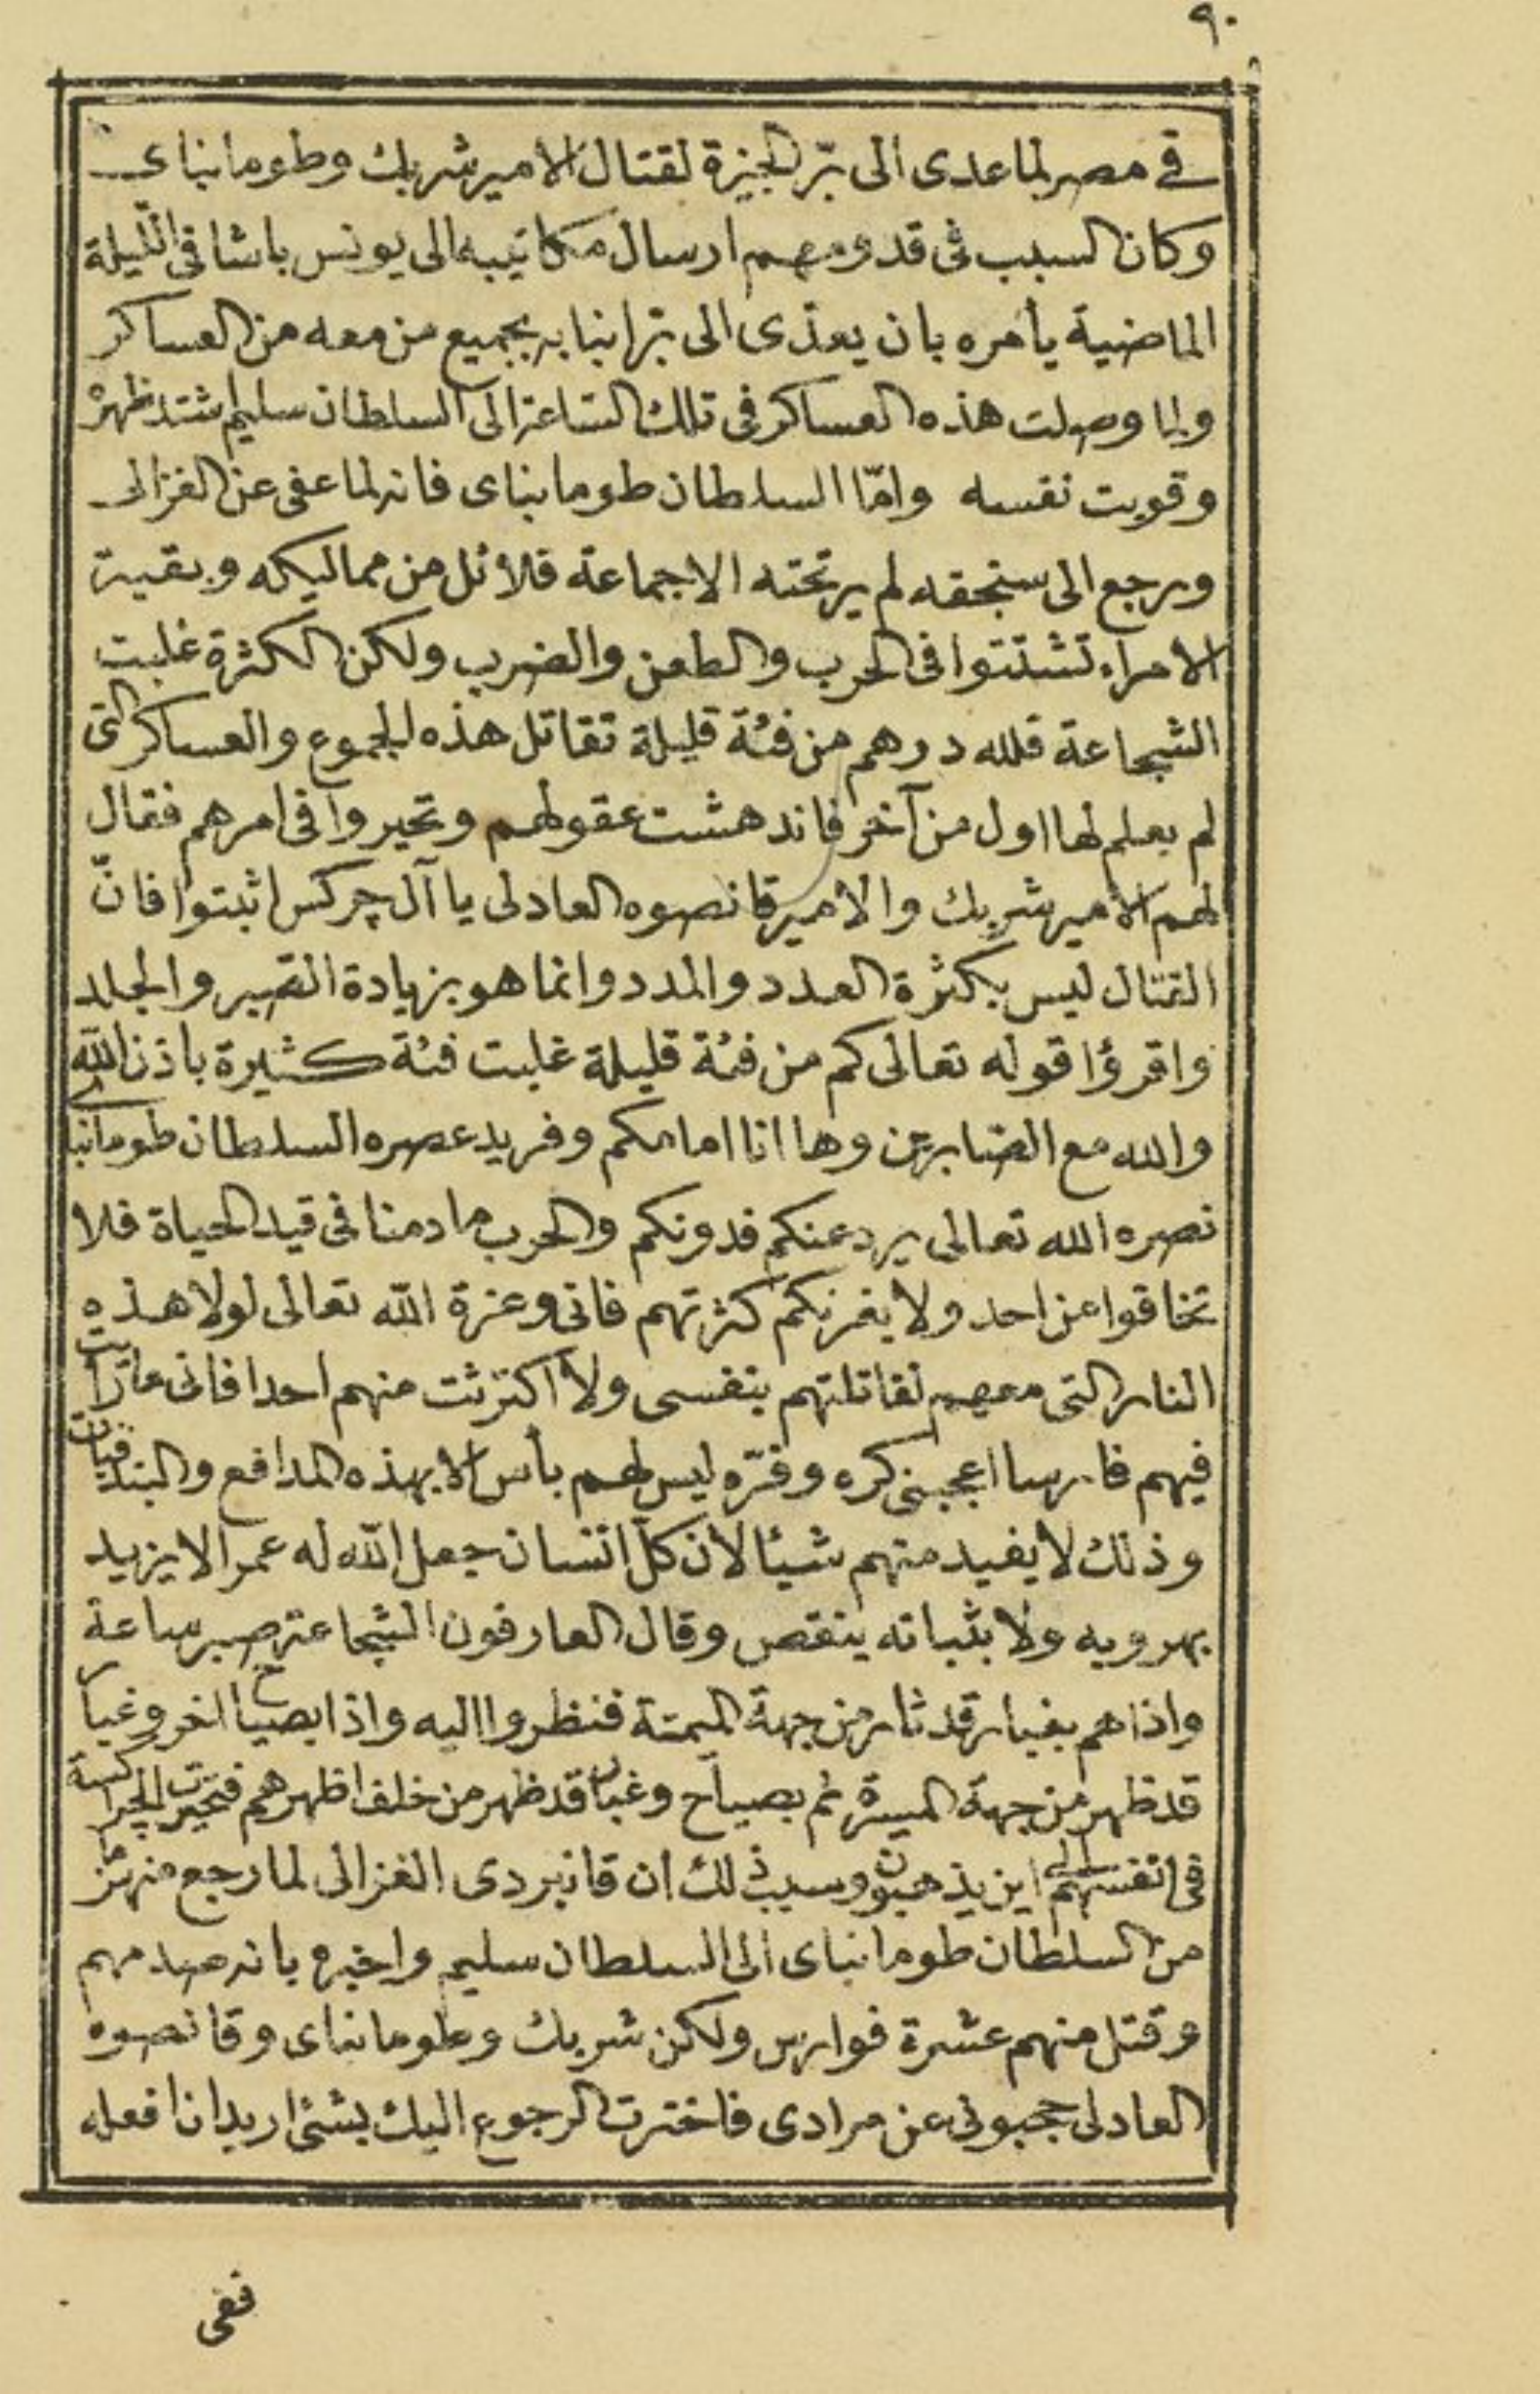 ٩٠
في مصر لما عدى الى برّ الجيزة لقتال الامير شربك وطومانباى
وكان السبب فى قدومهم ارسال مكاتيبه الى يونس باشا فى الليلة
الماضية يأمره بان يعدّى الى برّ انبابه بجميع من معه من العساكر
ولما وصلت هذه العساكر فى تلك الساعة الى السلطان سليم اشتد ظهره
وقويت نفسه وامّا السلطان طومانباى فانه لما عفى عن الغزالى
ورجع الى سنجقه لم ير تحته الا جماعة قلائل من مماليكه وبقية
الامراء تشتتوا فى الحرب والطعن والضرب ولكن الكثرة غلبت
الشجاعة فلله درهم من فئة قليلة تقاتل هذه الجموع والعساكر التى
لم يعلم لها اول من آخر فاندهشت عقولهم وتحيروا فى امرهم فقال
لهم الامير شربك والامير قانصوه العادلى يا آل چركس اثبتوا فانّ
القتال ليس بكثرة العدد والمدد وانما هو بزيادة الصبر والجلد
واقرؤا قوله تعالى كم من فئة قليلة غلبت فئة كثيرة باذن الله
والله مع الصابرين وها انا امامكم وفريد عصره السلطان طومانباى
نصره الله تعالى يرد عنكم فدونكم والحرب ما دمنا فى قيد الحياة فلا
تخافوا من احد ولا يغرنكم كثرتهم فانى وعزة الله تعالى لولا هذه
النار التى معهم لقاتلتهم بنفسى ولا اكترثت منهم احدا فانى ما رأيت
فيهم فارسا اعجبنى كره وفرّه ليس لهم بأس الا بهذه المدافع والبندقيات
وذلك لا يفيد منهم شيئا لان كلّ انسان جعل الله له عمرا لا يزيد
بهروبه ولا بثباته ينقص وقال العارفون الشجاعة صبر ساعة
واذا هم بغبار قد ثار من جهة الميمنة فنظروا اليه واذا بصياح اخر وغبار
قد ظهر من جهة الميسرة ثم بصياح وغبار قد ظهر من خلف اظهرهم فتحيرت الچراكسة
فى انفسهم الى اين يذهبون وسبب ذلك ان قانبردى الغزالى لما رجع منهزما
من السلطان طومانباى الى السلطان سليم واخبره بانه صدمهم
وقتل منهم عشرة فوارس ولكن شربك وطومانباى وقانصوه
العادلى حجبونى عن مرادى فاخترت الرجوع اليك بشئ اريد ان افعله
ففى